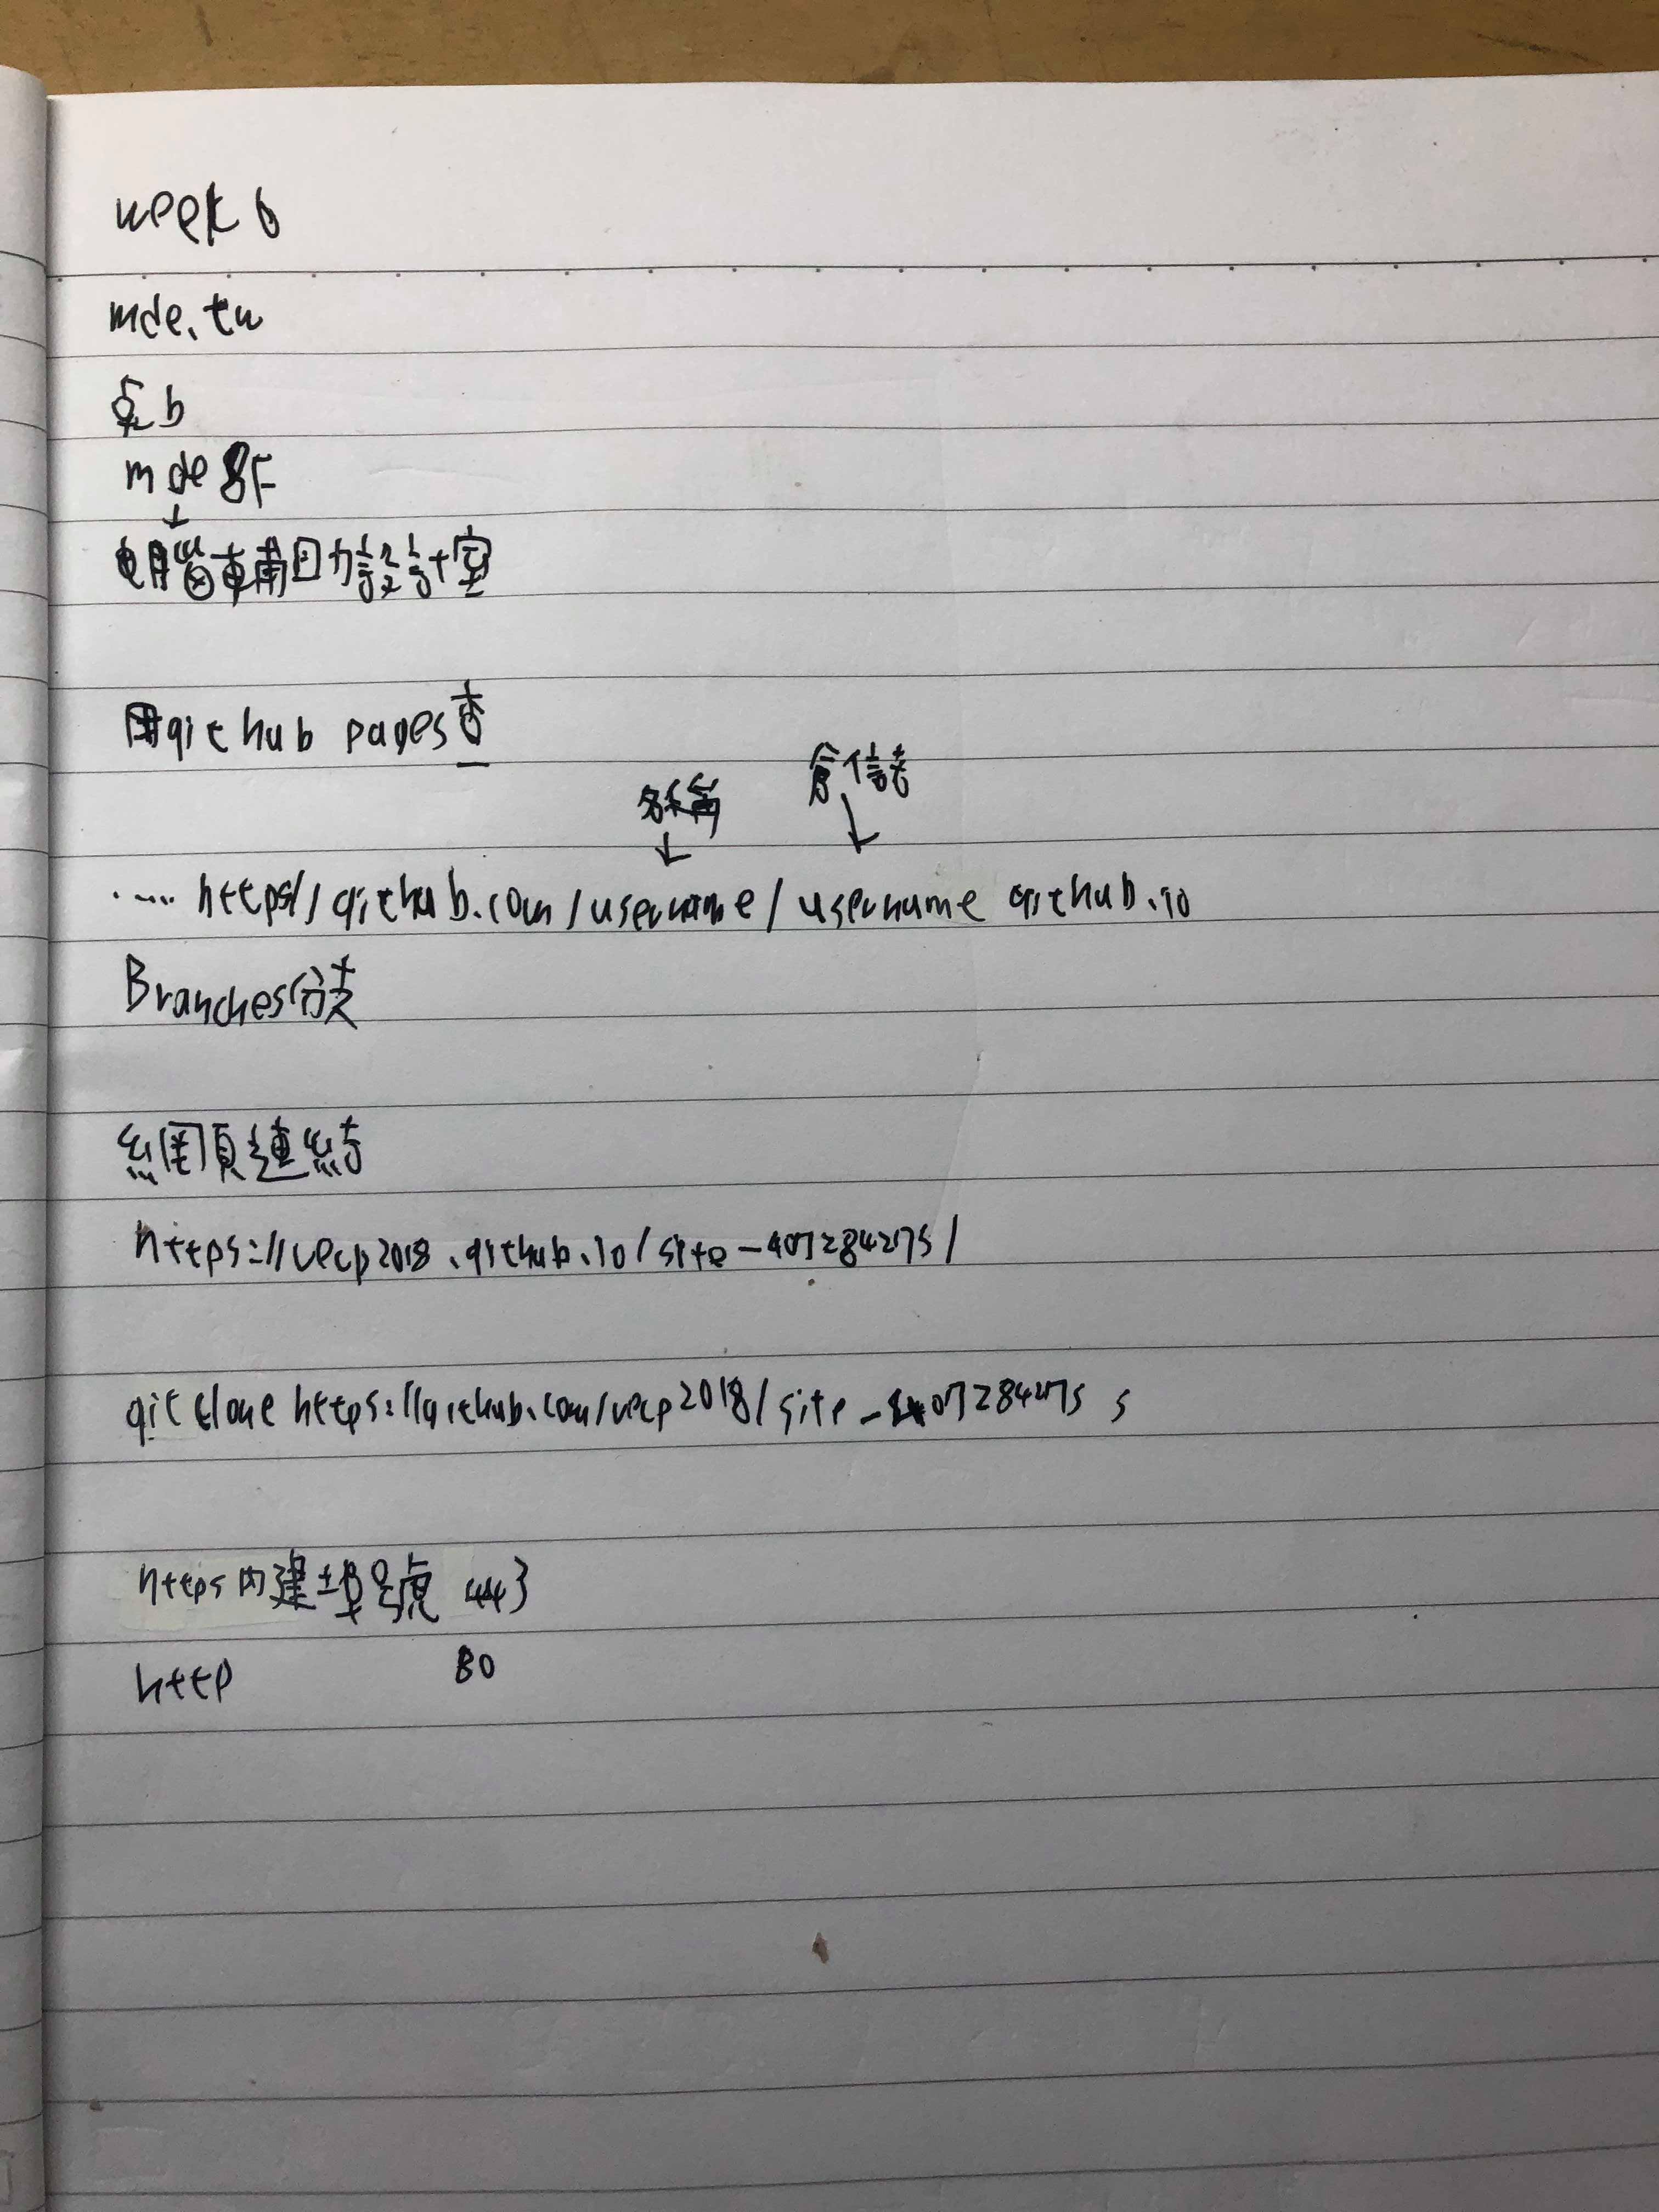 week 6
mde.tw
mde 8F
↓
電腦輔助設計室
用github pages查
名稱 倉儲
↓ ↓
..... https// github.com/username/ username github.io
Branches分支
網頁連結
https://vecp2018.github.io/site-40728427s/
git clone https://github.com/vecp2018/site-40728427s s
https內建埠號 443
http 80